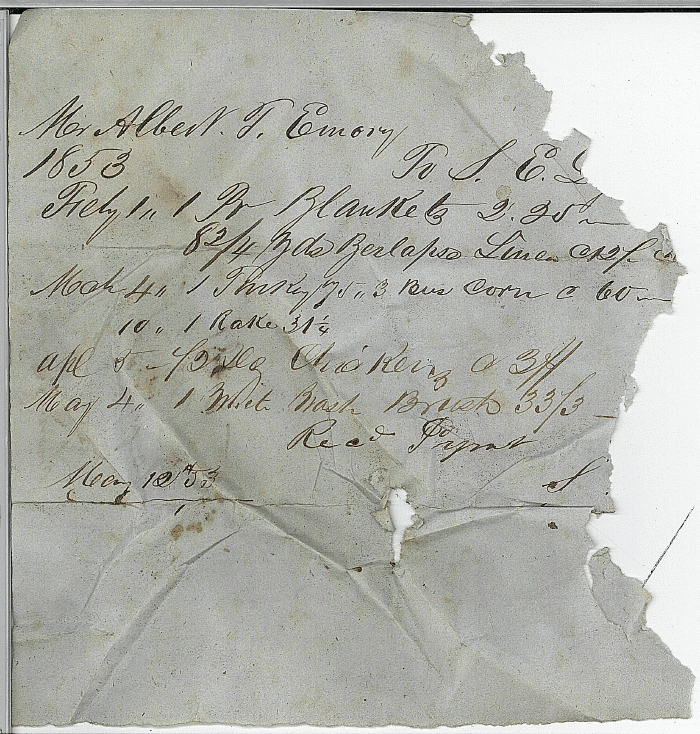 Mr Albert. T. Emory
1853 To S. E.
Feby 1 " 1 Pr Blankets 2.25
8 3/4 Yds Berlaps Linen @ 12/
Mch 4 " 1 Turkey 75 " 3 Bus Corn @ 60
10 " 1 Rake 31 1/4
Apl 5 1/2 Chickens @ 3//
May 4 " 1 White Wash Brush 33/3
Recd Paymt
May 12th 53 S